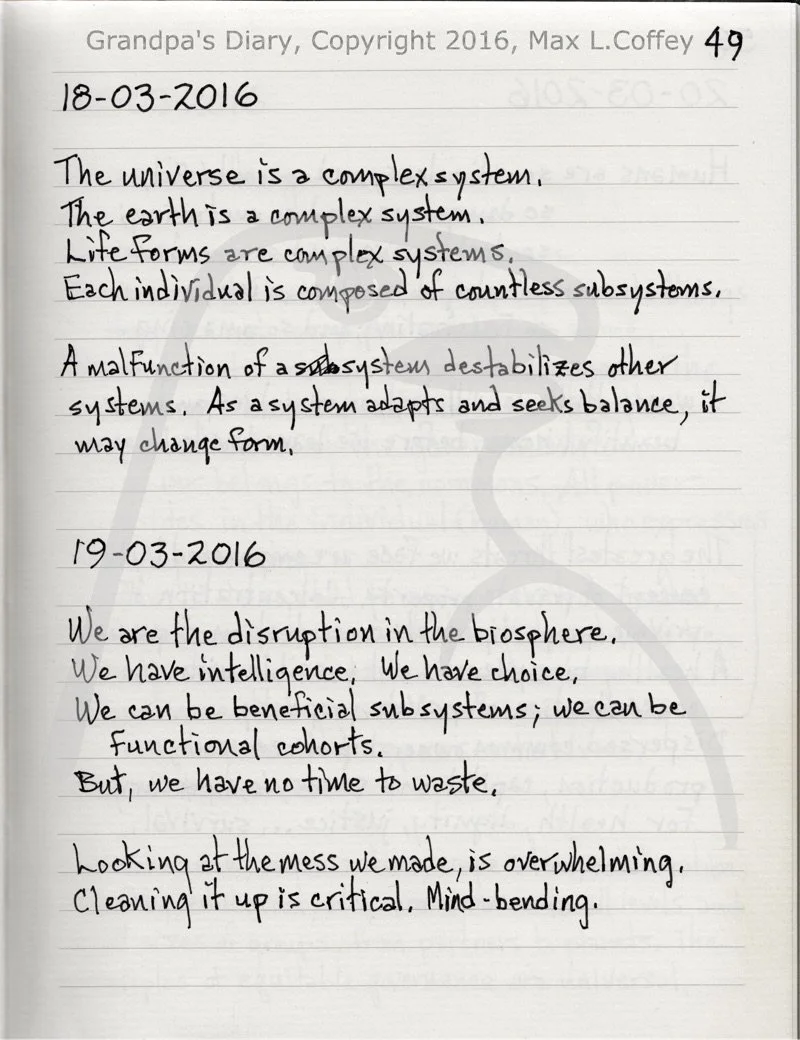 Grandpa's Diary, Copyright 2016, Max L.Coffey 49
18-03-2016
The universe is a complex system.
The earth is a complex system.
Life forms are complex systems.
Each individual is composed of countless subsystems.
A malfunction of a system destabilizes other
systems. As a system adapts and seeks balance, it
may change form.
19-03-2016
We are the disruption in the biosphere.
We have intelligence. We have choice.
We can be beneficial subsystems; we can be
functional cohorts.
But, we have no time to waste.
Looking at the mess we made, is overwhelming.
Cleaning it up is critical. Mind-bending.